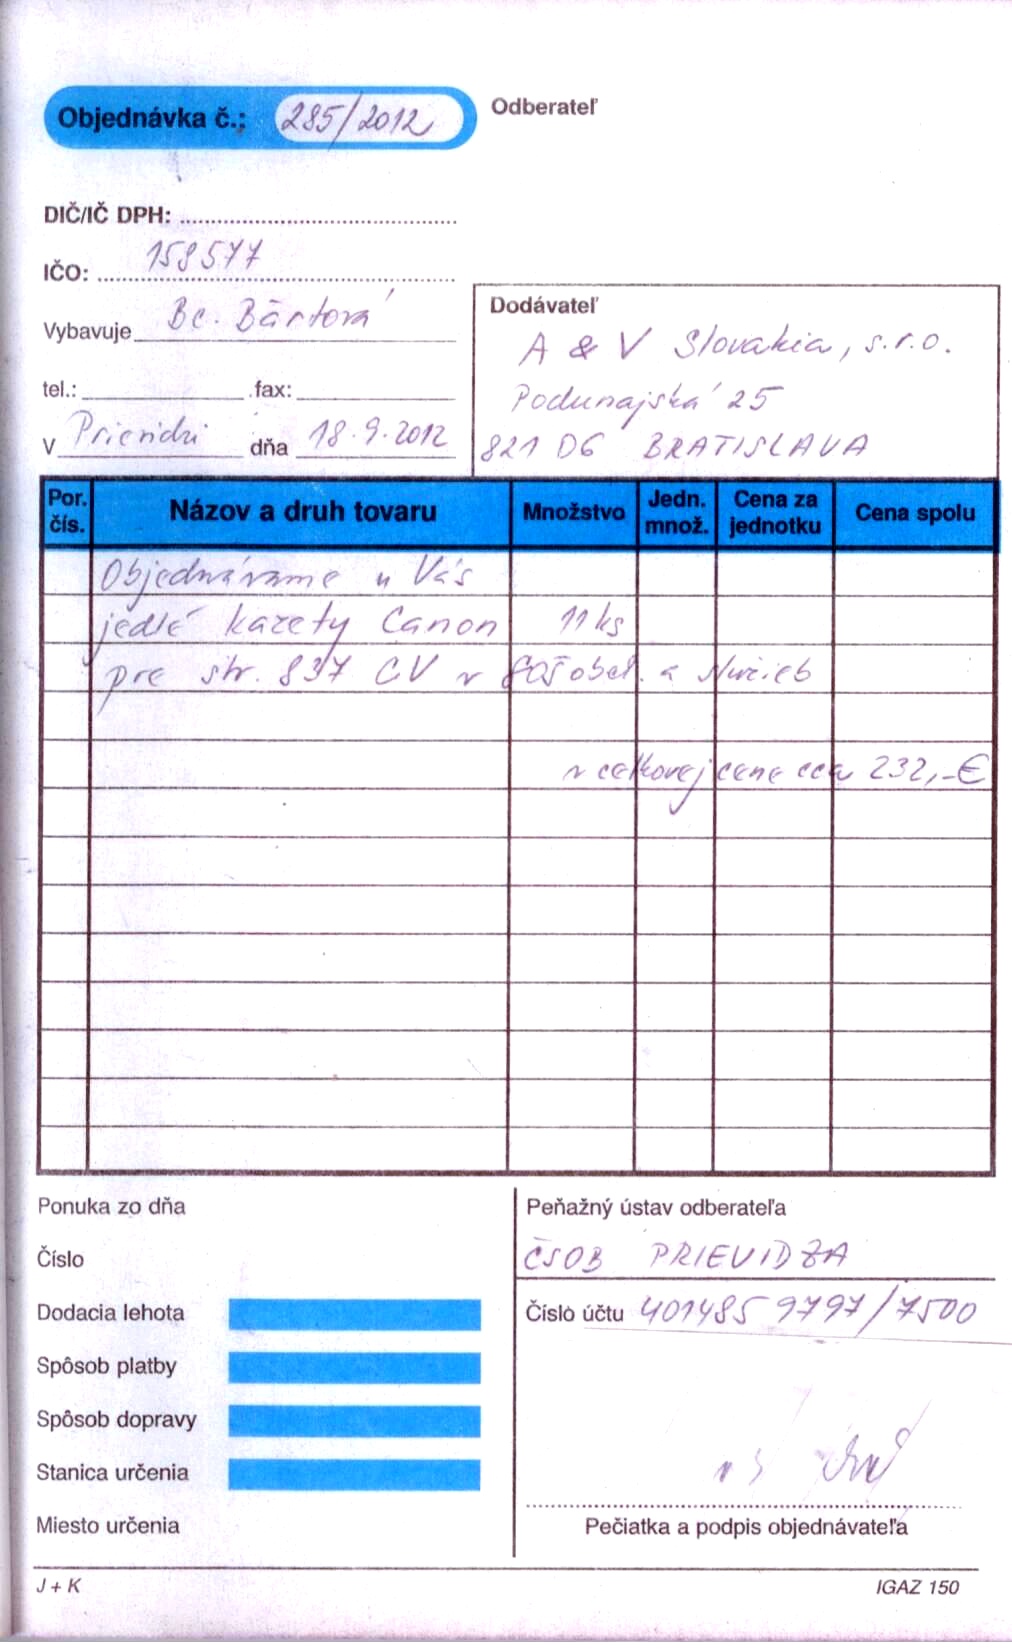 Objednávka č.: 285/2012
Odberateľ
DIČ/IČ DPH:
IČO: 158577
Vybavuje Bc. Bártová
tel.: fax:
V Prievidzi dňa 18.9.2012
Dodávateľ
A & V Slovakia, s.r.o.
Podunajská 25
821 06 BRATISLAVA
Por. čís. Názov a druh tovaru Množstvo Jedn. množ. Cena za jednotku Cena spolu
Objednávame u Vás
jedlé kazety Canon 11 ks
pre str. 837 CV v SOŠ obch. a služieb
v celkovej cene cca 232,-€
Ponuka zo dňa
Číslo
Dodacia lehota
Spôsob platby
Spôsob dopravy
Stanica určenia
Miesto určenia
Peňažný ústav odberateľa
ČSOB PRIEVIDZA
Číslo účtu 4014859797/7500
Pečiatka a podpis objednávateľa
J + K
IGAZ 150